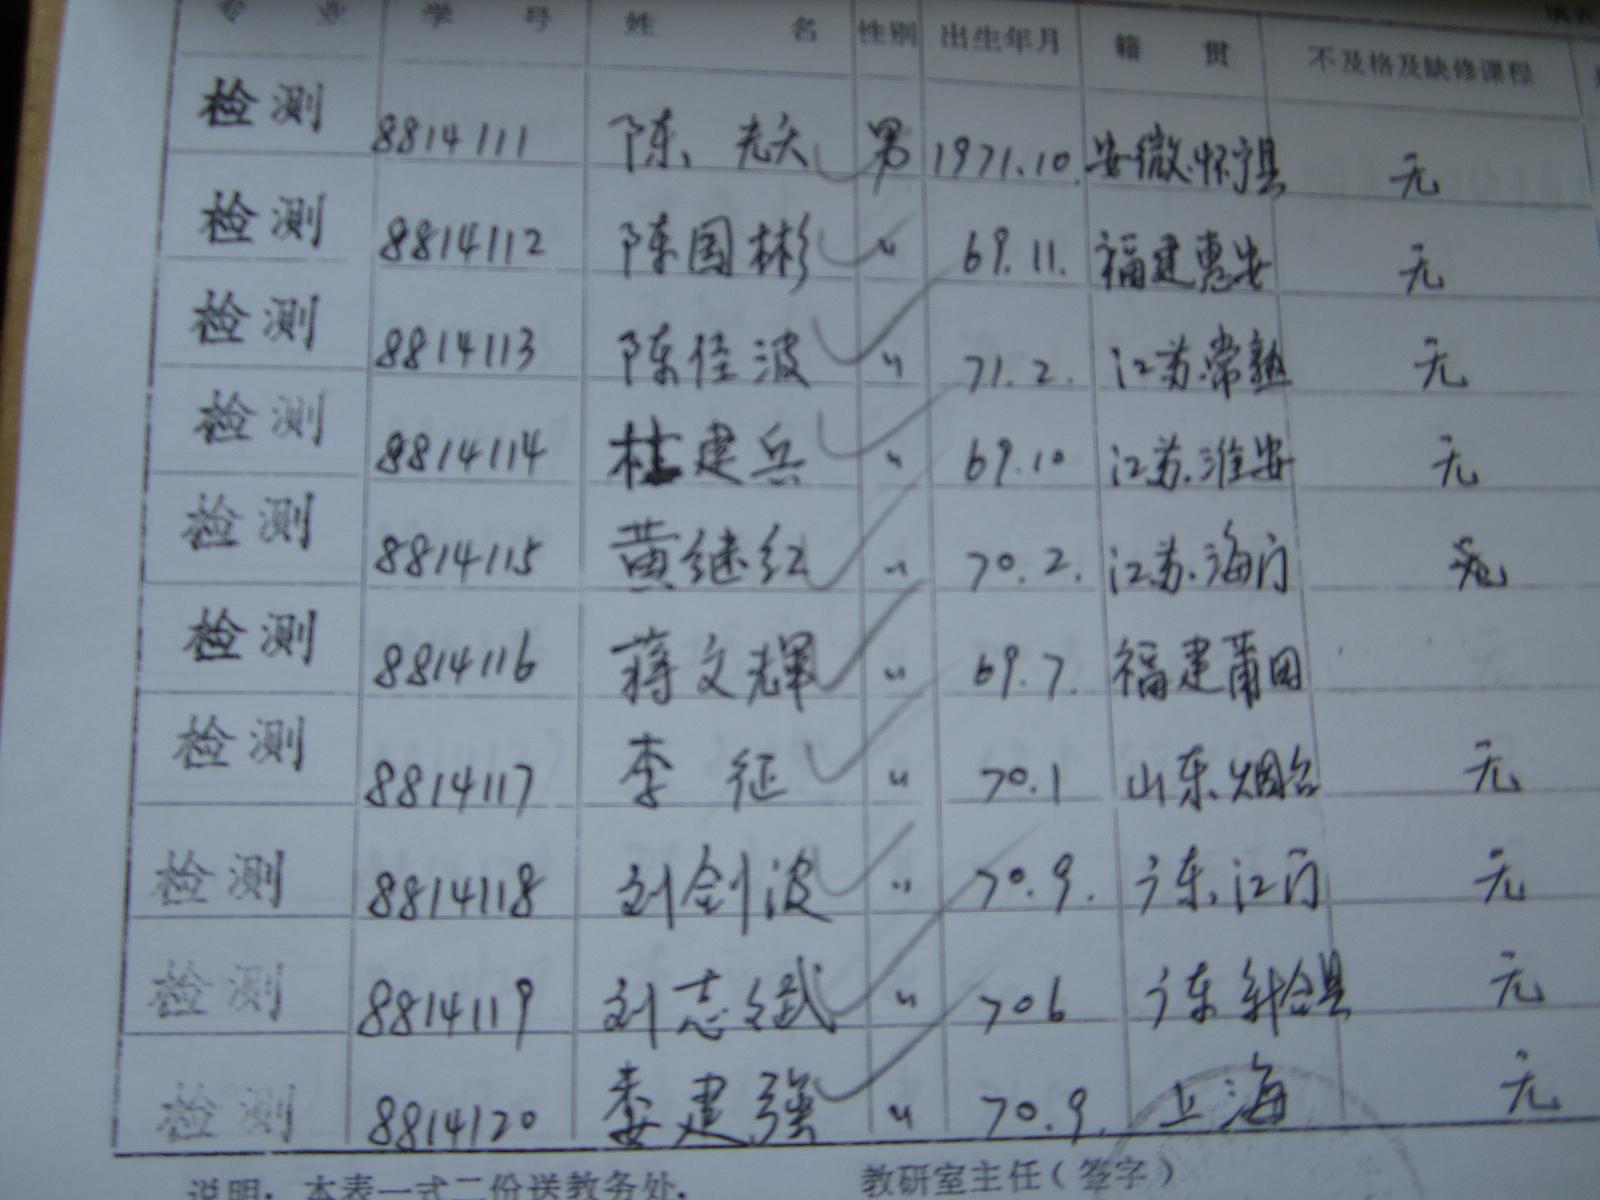 专 业 学 号 姓 名 性别 出生年月 籍 贯 不及格及缺修课程
检测 8814111 陈, 男 1971.10. 安徽.怀宁县 无
检测 8814112 陈国彬 〃 69.11. 福建惠安 无
检测 8814113 陈佳波 〃 71.2. 江苏.常熟 无
检测 8814114 杜建兵 〃 69.10 江苏.淮安 无
检测 8814115 黄继红 〃 70.2. 江苏.海门
检测 8814116 蒋文辉 〃 69.7. 福建莆田
检测 8814117 李 征 〃 70.1 山东.烟台 无
检测 8814118 刘剑波 〃 70.9. 广东.江门 无
检测 8814119 刘志斌 〃 706 广东 无
检测 8814120 娄建强 〃 70.9. 上海 无
说明：本表一式二份送教务处. 教研室主任(签字)